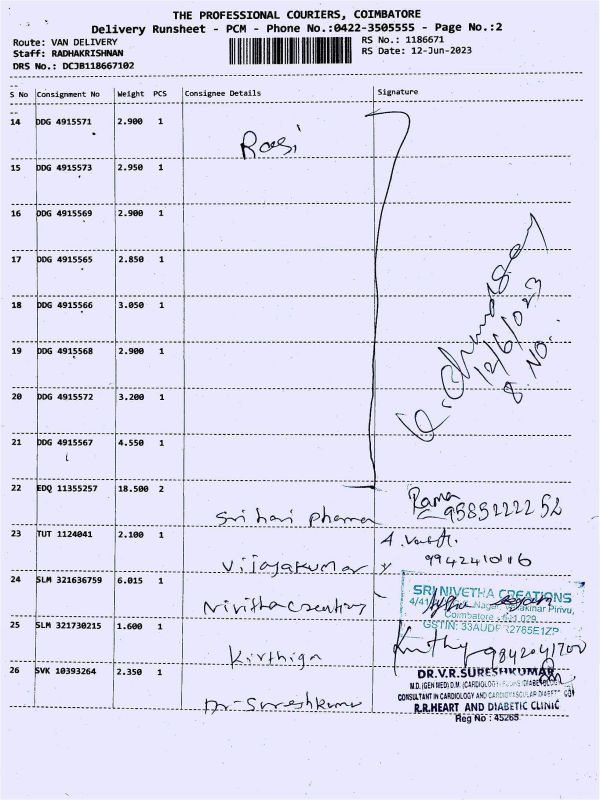 THE PROFESSIONAL COURIERS, COIMBATORE
Delivery Runsheet - PCM - Phone No.:0422-3505555 - Page No.:2
Route: VAN DELIVERY
RS No.: 1186671
Staff: RADHAKRISHNAN
RS Date: 12-Jun-2023
DRS No.: DCJB118667102
S No Consignment No Weight PCS Consignee Details Signature
14 DDG 4915571 2.900 1 Rasi
15 DDG 4915573 2.950 1
16 DDG 4915569 2.900 1
17 DDG 4915565 2.850 1
18 DDG 4915566 3.050 1
19 DDG 4915568 2.900 1
20 DDG 4915572 3.200 1
21 DDG 4915567 4.550 1
12/6/023
8 NO.
22 EDQ 11355257 18.500 2 Sri hari pharma Rama
23 TUT 1124041 2.100 1 Vijayakumar
24 SLM 321636759 6.015 1 Nivitha creations
SRI NIVETHA CREATIONS
Nagar, Pirivu,
Coimbatore
25 SLM 321730215 1.600 1 Kirthiga 9842041700
26 SVK 10393264 2.350 1 Dr. Sureshkumar
DR.V.R.SURESHKUMAR
CONSULTANT IN CARDIOLOGY AND CARDIOVASCULAR
R.R.HEART AND DIABETIC CLINIC
Reg No : 45265